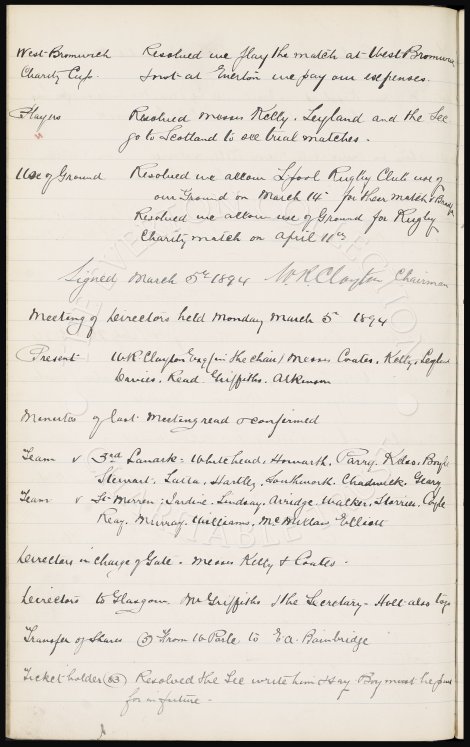 West Bromwich Resolved we play the match at West Bromwich
Charity Cup. & not at Everton we pay our expenses.
Players Resolved Messrs Kelly, Leyland and the Sec
go to Scotland to see trial matches.
Use of Ground Resolved we allow L'pool Rugby Club use of
our Ground on March 14 for their match v
Resolved we allow use of Ground for Rugby
Charity match on April 11th
Signed March 5th 1894 W.R. Clayton Chairman
Meeting of Directors held Monday March 5 1894
Present W.R. Clayton Esq (in the Chair) Messrs Coates, Kelly, Leyland
Davies, Read, Griffiths, Atkinson
Minutes of last Meeting read & confirmed
Team v 3rd Lanark: Whitehead, Howarth, Parry, Kelso, Boyle
Stewart, Latta, Hartley, Southworth, Chadwick, Geary
Team v St Mirren: Jardine, Lindsay, Arridge, Walker, Storrier, Coyle
Reay, Murray, Williams, McMillan, Elliott
Directors in charge of Gate. Messrs Kelly & Coates.
Directors to Glasgow Mr Griffiths & the Secretary - Holt also to go
Transfer of Shares (3) From W Parle to E.A. Bainbridge
Ticket holder (63) Resolved the Sec write him & say Boy must be paid
for in future.